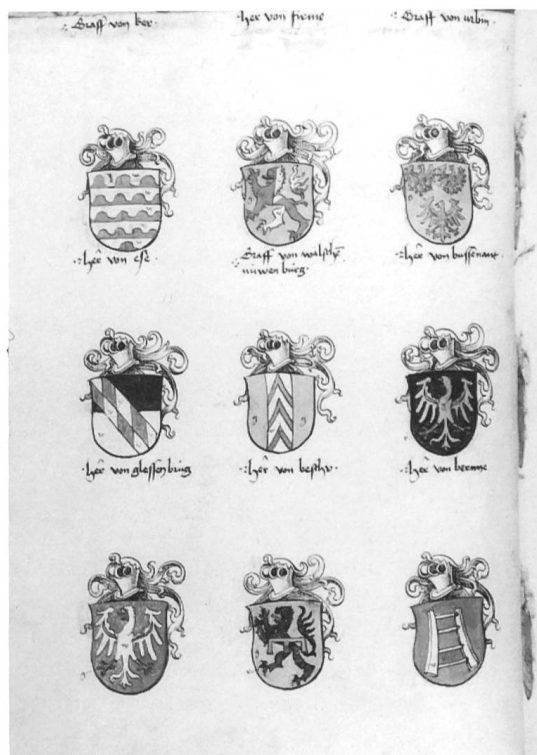 Graff von ker.
her von firme
Graff von urbin.
her von ese
Graff von walsche
nuwen burg.
her von bussenant
her von glessenburg
her von besthv.
her von bernne